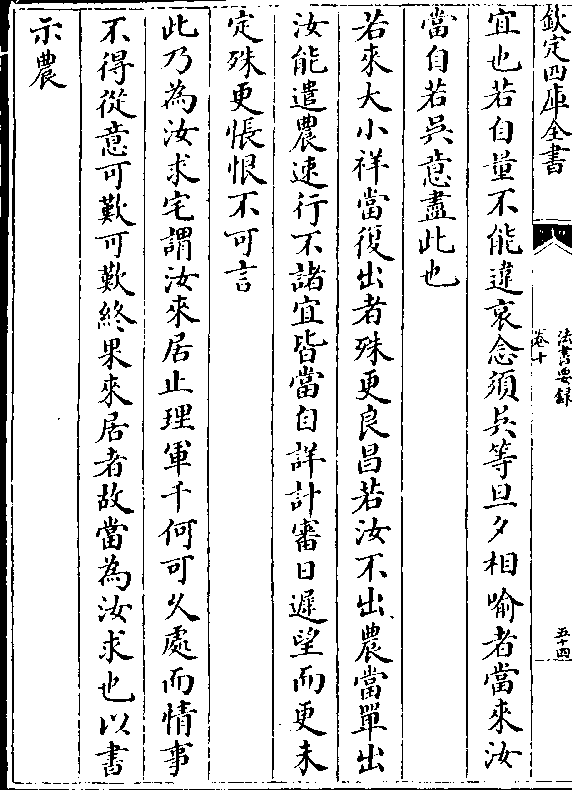 欽定四庫全書
法書要錄
卷十
五十四
宜也若自量不能違哀念須吳等旦夕相喻者當來汝
當自若吳意盡此也
若來大小祥當復出者殊更良昌若汝不出農當單出
汝能遣農速行不諸宜皆當自詳計審日遲望而更未
定殊更悵恨不可言
此乃為汝求宅謂汝來居止理軍千何可久處而情事
不得從意可歎可歎終果來居者故當為汝求也以書
示農